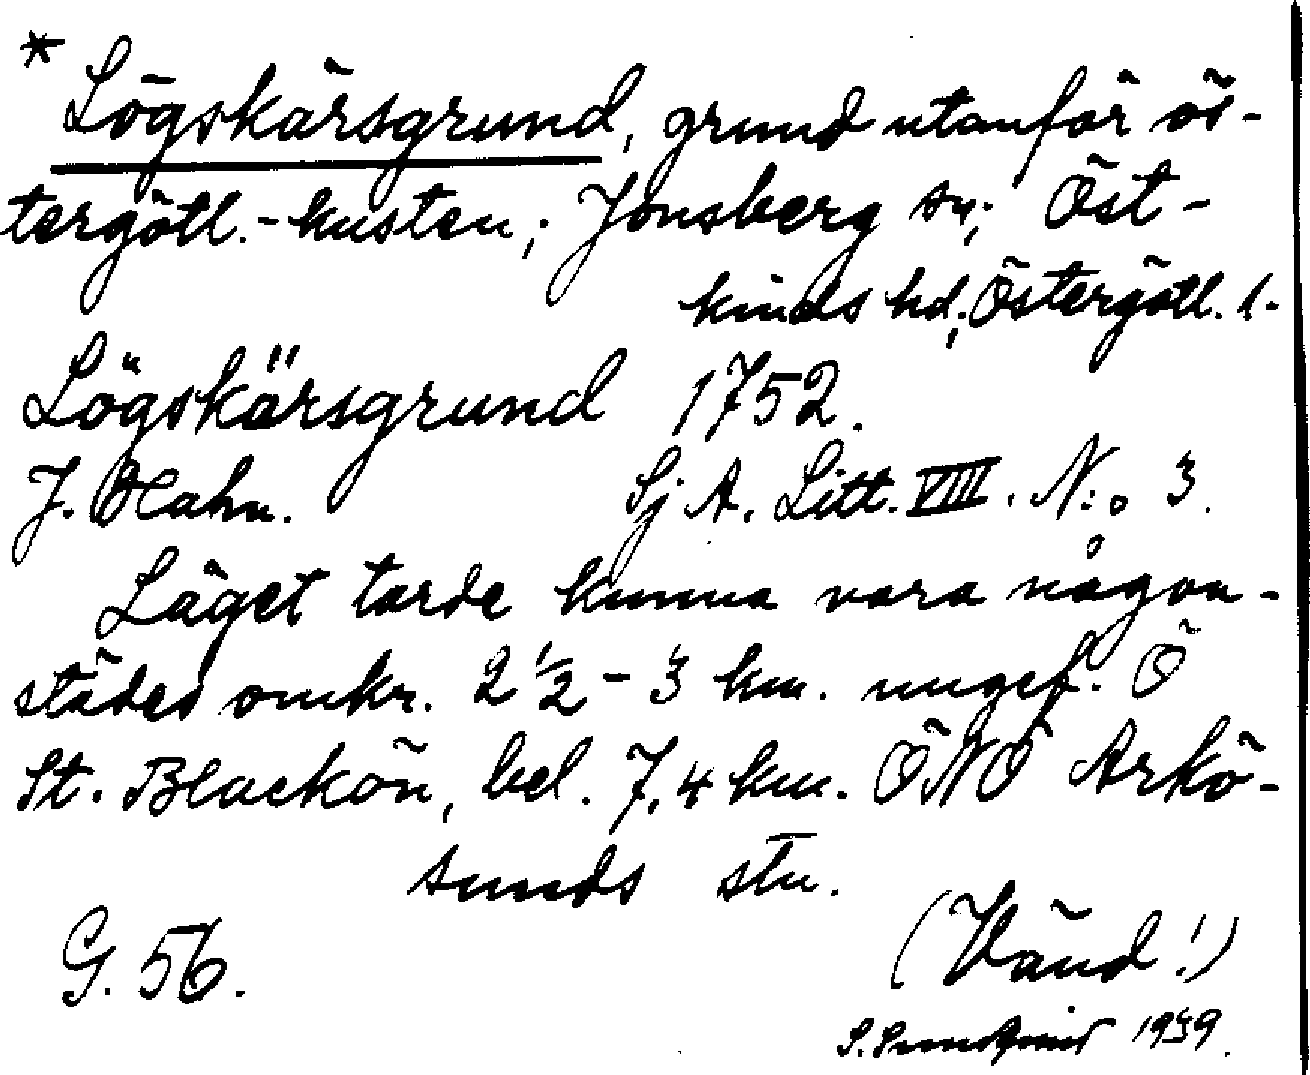 * Lögskärsgrund, grund utanför ös-
tergötl.-kusten; Jonsberg sn; Öst-
kinds hd; Östergötl. l.
Lögskärsgrund 1752.
J. Hahn. Sj A. Litt. VIII. N:o 3.
Läget torde kunna vara någon-
städes omkr. 2 1/2 - 3 km. ungef. Ö
St. Blackön, bel. 7,4 km. ÖNÖ Arkö-
sunds stn.
G. 56. (Vänd!)
S. Sundqvist 1939.